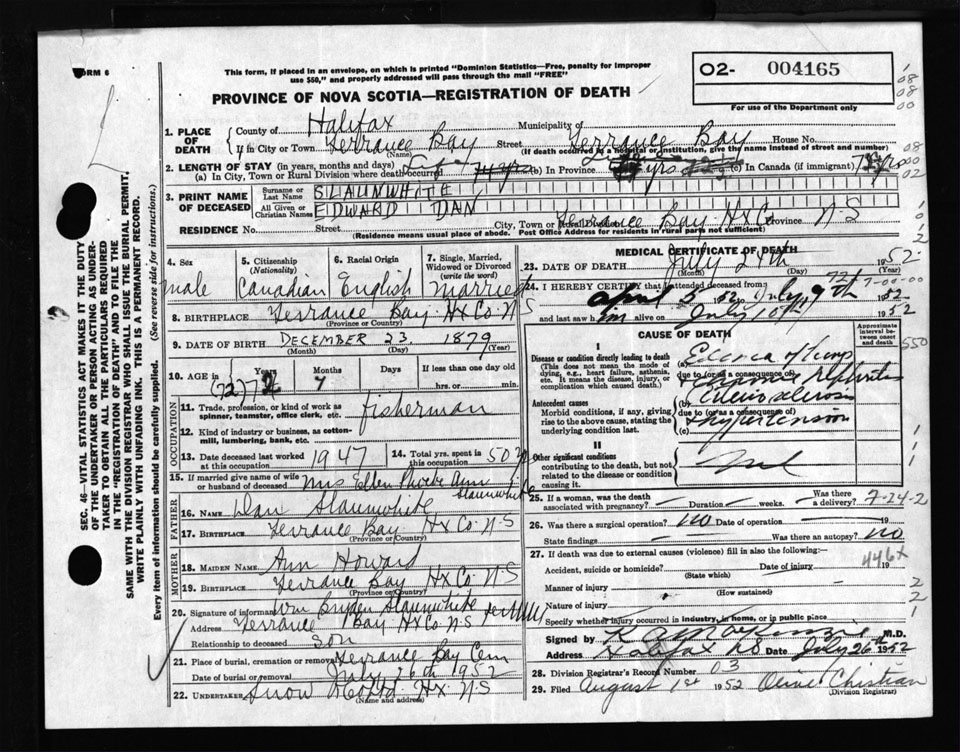 FORM 6
This form, if placed in an envelope, on which is printed "Dominion Statistics—Free, penalty for improper
use $50," and properly addressed will pass through the mail "FREE"
PROVINCE OF NOVA SCOTIA—REGISTRATION OF DEATH
O2- 004165
For use of the Department only
SEC. 46—VITAL STATISTICS ACT MAKES IT THE DUTY
OF THE UNDERTAKER OR PERSON ACTING AS UNDER-
TAKER TO OBTAIN ALL THE PARTICULARS REQUIRED
IN THE "REGISTRATION OF DEATH" AND TO FILE THE
SAME WITH THE DIVISION REGISTRAR WHO SHALL ISSUE THE BURIAL PERMIT.
WRITE PLAINLY WITH UNFADING INK. THIS IS A PERMANENT RECORD.
Every item of information should be carefully supplied. (See reverse side for instructions.)
1. PLACE OF DEATH County of Halifax Municipality of
If in City or Town Terrance Bay Street Terrance Bay House No.
(Name) (If death occurred in a hospital or institution, give the name instead of street and number)
2. LENGTH OF STAY (in years, months and days)
(a) In City, Town or Rural Division where death occurred (b) In Province yrs (c) In Canada (if immigrant)
3. PRINT NAME OF DECEASED Surname or Last Name SLAUNWHITE
All Given or Christian Names EDWARD DAN
RESIDENCE No. Street City, Town or Rural Division Terrance Bay HxCo Province N S
(Residence means usual place of abode. Post Office Address for residents in rural parts not sufficient)
4. Sex male
5. Citizenship (Nationality) Canadian
6. Racial Origin English
7. Single, Married, Widowed or Divorced (write the word) married
8. BIRTHPLACE Terrance Bay Hx Co. N S
(Province or Country)
9. DATE OF BIRTH DECEMBER 23 1879
(Month) (Day) (Year)
10. AGE in Years Months Days If less than one day old
(72) 7 hrs. or min.
OCCUPATION
11. Trade, profession, or kind of work as spinner, teamster, office clerk, etc. fisherman
12. Kind of industry or business, as cotton-mill, lumbering, bank, etc.
13. Date deceased last worked at this occupation 1947
14. Total yrs. spent in this occupation 50
15. If married give name of wife or husband of deceased Mrs Ellen Phoebe Ann Slaunwhite
FATHER
16. Name Dan Slaunwhite
17. Birthplace Terrance Bay Hx Co. N-S
(Province or Country)
MOTHER
18. Maiden Name Ann Howard
19. Birthplace Terrance Bay Hx Co N S
(Province or Country)
20. Signature of informant Wm Bryden Slaunwhite
Address Terrance Bay HxCo N S
Relationship to deceased son
21. Place of burial, cremation or removal Terrance Bay Cem
Date of burial or removal July 26th 1952
22. UNDERTAKER Snow Hx. N S
(Name and address)
MEDICAL CERTIFICATE OF DEATH
23. DATE OF DEATH July 24th 1952
(Month) (Day) (Year)
24. I HEREBY CERTIFY that I attended deceased from
April 5 52 to July 9th 1952
and last saw him alive on July 10th 1952
CAUSE OF DEATH
Approximate interval between onset and death
I
Disease or condition directly leading to death
(This does not mean the mode of dying, e.g., heart failure, asthenia, etc. It means the disease, injury, or complication which caused death.)
(a) Edema of Lungs
due to (or as a consequence of)
(b) Chronic Nephritis
Antecedent causes
Morbid conditions, if any, giving rise to the above cause, stating the underlying condition last.
due to (or as a consequence of)
(c) Hypertension
II
Other significant conditions
contributing to the death, but not related to the disease or condition causing it
25. If a woman, was the death associated with pregnancy? Duration weeks. Was there a delivery? 7-24-2
26. Was there a surgical operation? no Date of operation 19
State findings Was there an autopsy? no
27. If death was due to external causes (violence) fill in also the following: 446X
Accident, suicide or homicide? Date of injury 19
(State which)
Manner of injury
(How sustained)
Nature of injury
Specify whether injury occurred in industry, in home, or in public place
Signed by M.D.
Address Halifax NS Date July 26th 1952
28. Division Registrar's Record Number 03
29. Filed August 1st 1952 Olive Christian
(Division Registrar)